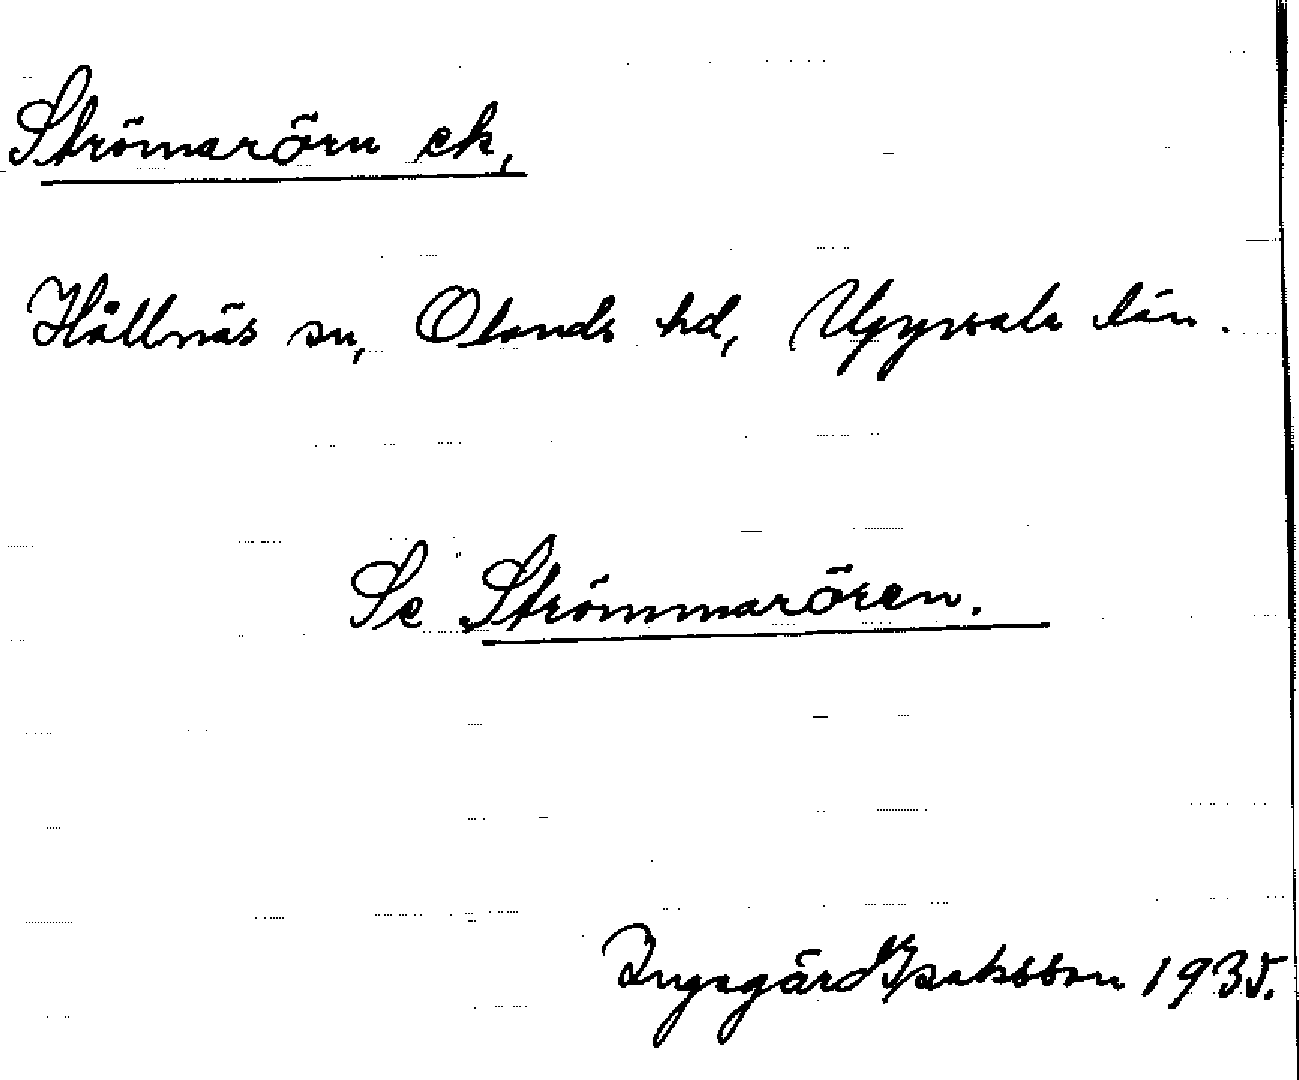 Strömarörn ek,
Hållnäs sn, Olands hd, Uppsala län.
Se Strömmarören.
Ingegärd Isaksson 1935.